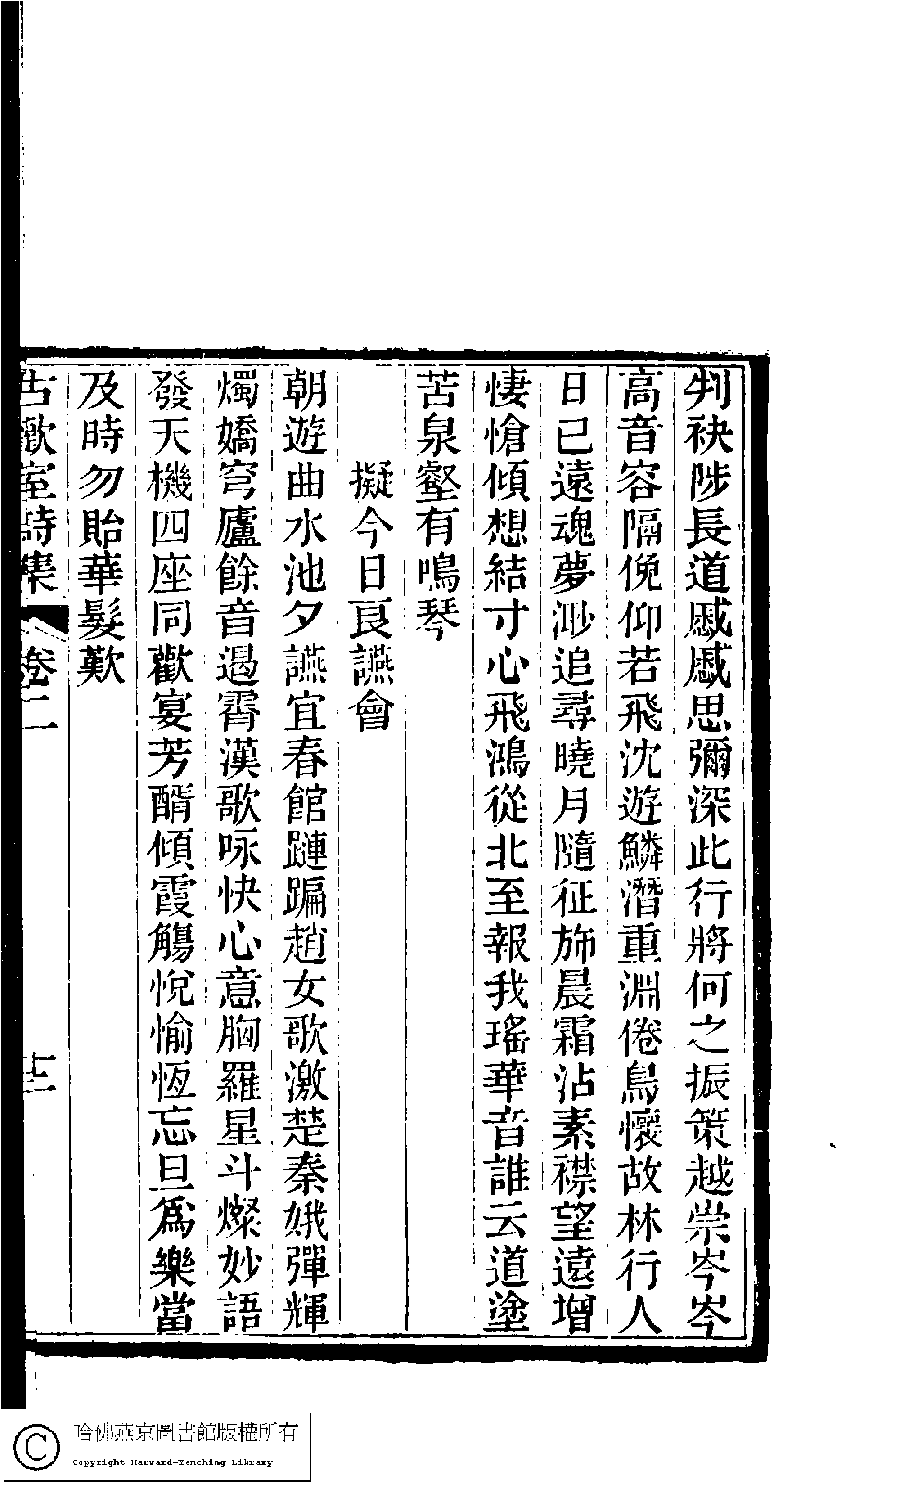 判袂陟長道慼慼思彌深此行將何之振策越崇岑岑
高音容隔俛仰若飛沈遊鱗潛重淵倦鳥懷故林行人
日已遠魂夢渺追尋曉月隨征斾晨霜沾素襟望遠增
悽愴傾想結寸心飛鴻從北至報我瑤華音誰云道塗
苦泉壑有鳴琴
擬今日良讌會
朝遊曲水池夕讌宜春館躚蹁趙女歌激楚秦娥彈輝
燭嬌穹廬餘音遏霄漢歌咏快心意胸羅星斗燦妙語
發天機四座同歡宴芳醑傾霞觴悅愉恆忘旦為樂當
及時勿貽華髮歎
古歡室詩集 卷二 十二
哈佛燕京圖書館版權所有
Copyright Harvard-Yenching Library